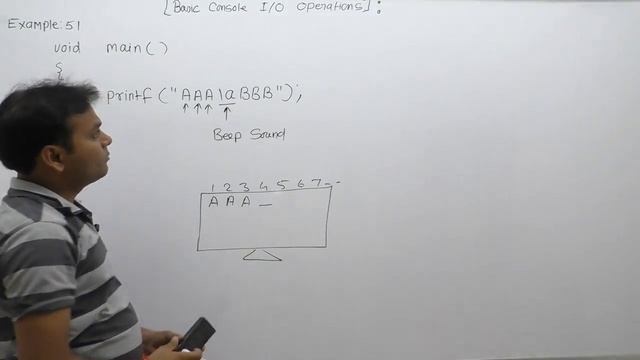 [Basic Console I/O Operations]:
Example: 51
void main()
{
printf("AAA\aBBB");
Beep Sound
1 2 3 4 5 6 7 - -
A A A _